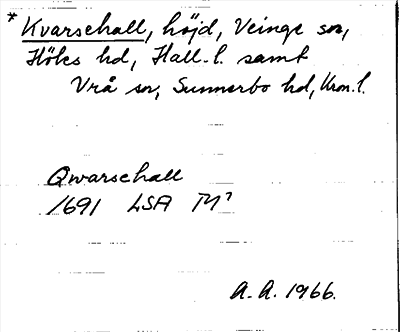 * Kvarschall, höjd, Veinge sn,
Höks hd, Hall. l. samt
Vrå sn, Sunnerbo hd, Kron. l.
Qwarschall
1691 LSA M7
A. A. 1966.